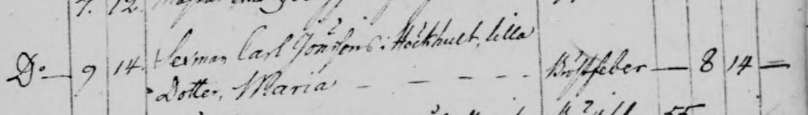 7. 12.
Do — 9 14. Herman Carl Jonssons i Hökhult, lilla
Dotter, Maria — — — — — Bröstfeber — 8 14 —
55